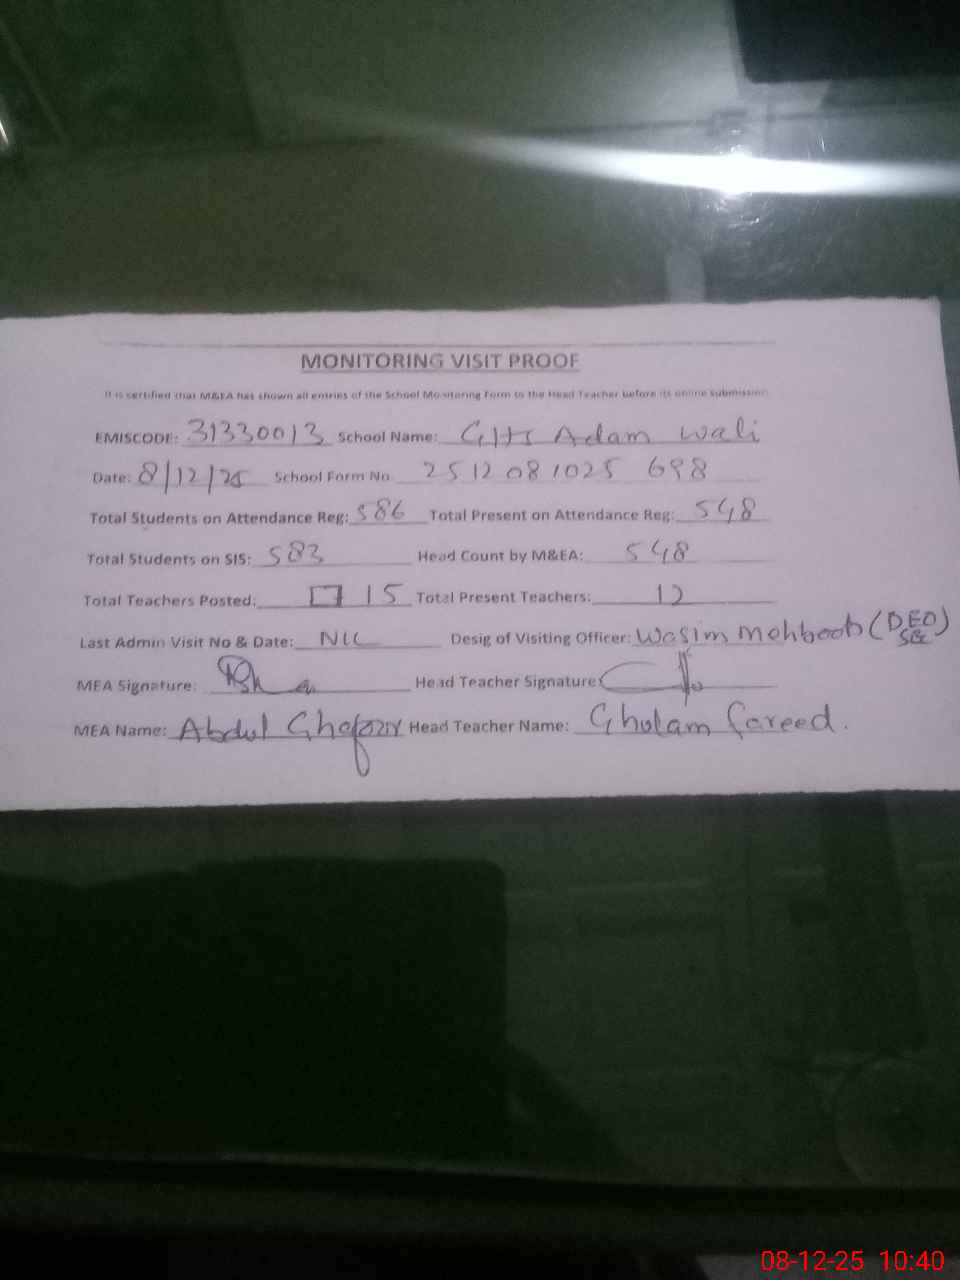 MONITORING VISIT PROOF
It is certified that M&EA has shown all entries of the School Monitoring Form to the Head Teacher before its online submission.
EMISCODE: 31330013 School Name: GHS Adam wali
Date: 8/12/25 School Form No. 2512081025 698
Total Students on Attendance Reg: 586 Total Present on Attendance Reg: 548
Total Students on SIS: 583 Head Count by M&EA: 548
Total Teachers Posted: 15 Total Present Teachers: 12
Last Admin Visit No & Date: NIL Desig of Visiting Officer: Wasim Mehboob (DEO SE)
MEA Signature: Head Teacher Signature:
MEA Name: Abdul Ghafoor Head Teacher Name: Ghulam fareed.
08-12-25 10:40